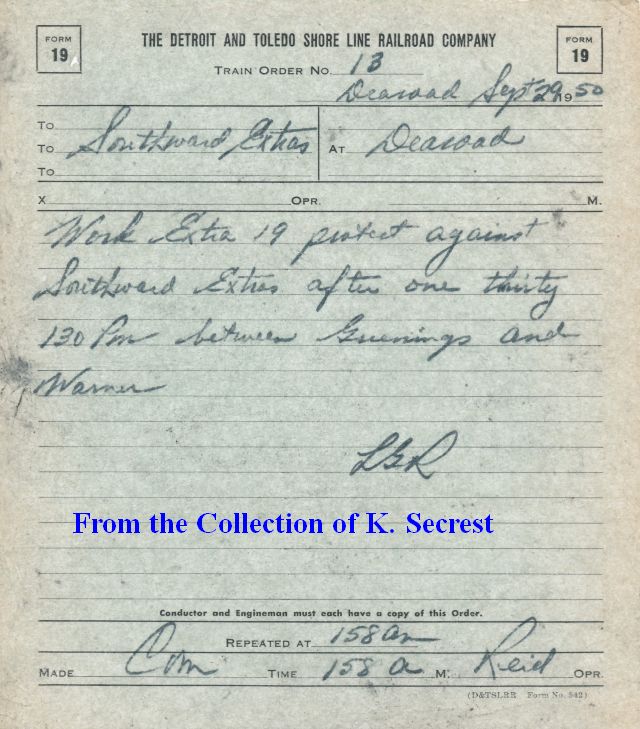 FORM 19
THE DETROIT AND TOLEDO SHORE LINE RAILROAD COMPANY
FORM 19
TRAIN ORDER NO. 13
Dearoad Sept 29 1950
TO
TO Southward Extras AT Dearoad
TO
X OPR. M.
Work Extra 19 protect against
Southward Extras after one thirty
130 Pm between Guenings and
Warner
LGR
From the Collection of K. Secrest
Conductor and Engineman must each have a copy of this Order.
REPEATED AT 158 am
MADE Com TIME 158 a M. Reid OPR.
(D&TSLRR Form No. 542)